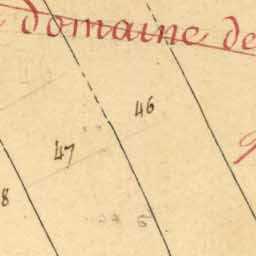 domaine de
46
47
8